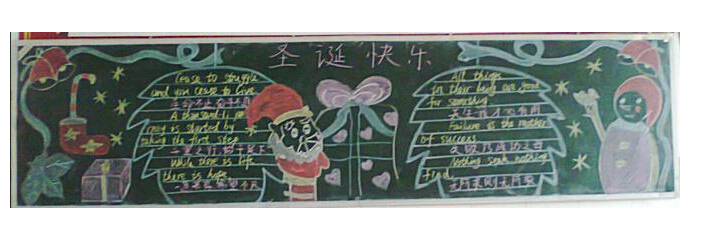 圣诞快乐
Cease to struggle
and you cease to live
生命不止奋斗不息
A thousand-li
is started by
taking the first step
千里之行始于足下
While there is life
there is hope
All things
in their being are good
for something
天生我才必有用
Failure is the mother
of success
失败乃成功之母
Nothing seek nothing
find
无所求则无所获